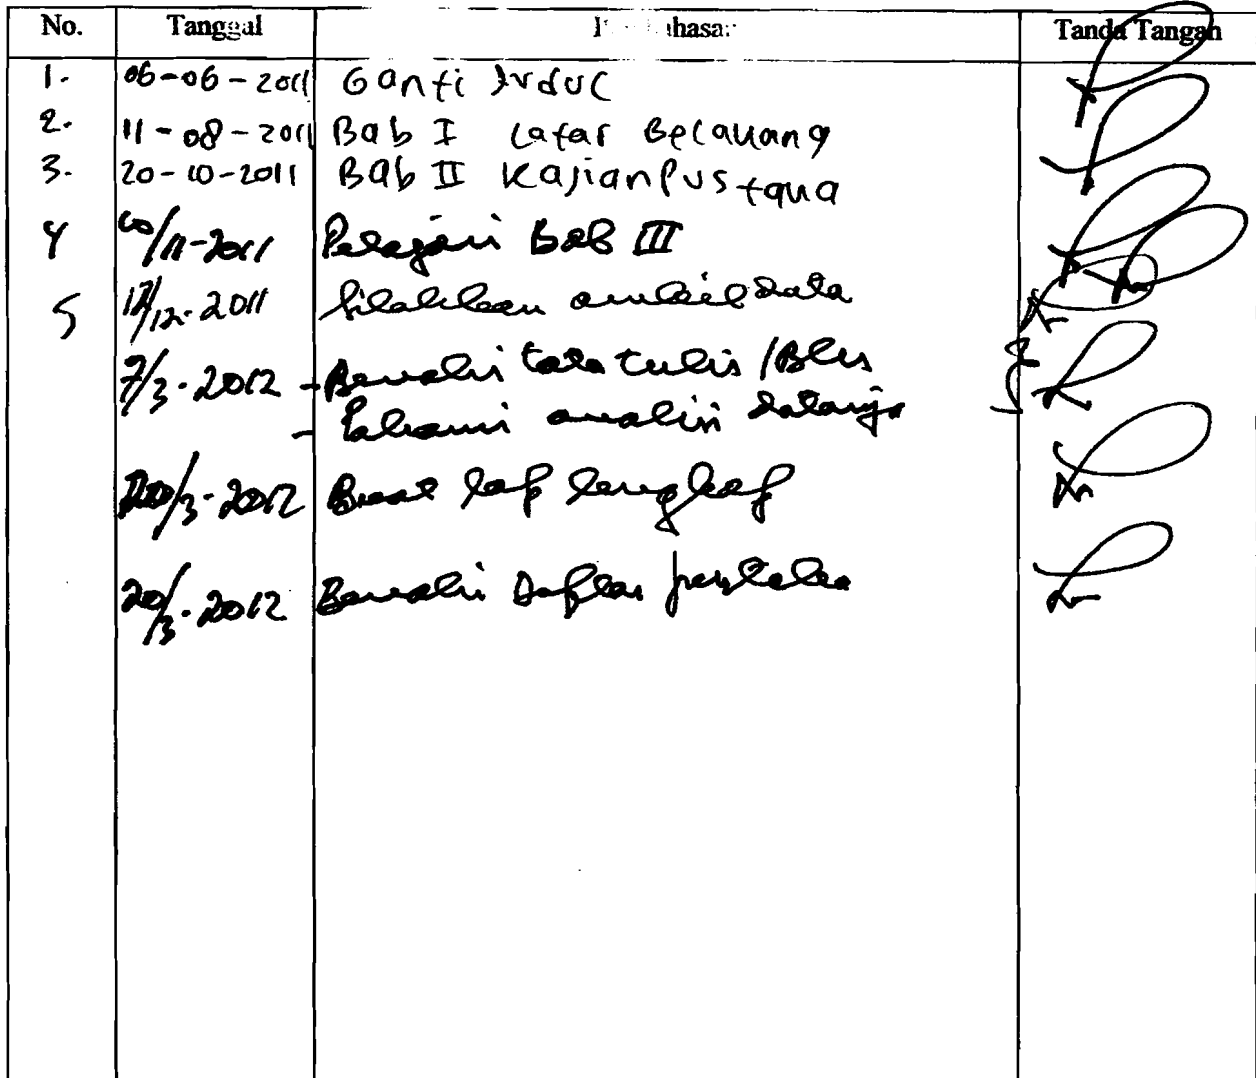 No. Tanggal Tanda Tangan
1. 06-06-2011 Ganti Judul
2. 11-08-2011 Bab I Latar Belakang
3. 20-10-2011 Bab II Kajian Pustaka
4 /11-2011 Pelajari Bab III
5 12/12-2011 Silahkan ambil data
7/3-2012 - Benahi tata tulis /
- Pahami analisis datanya
/3-2012 Buat lap lengkap
20/3-2012 Benahi Daftar pustaka